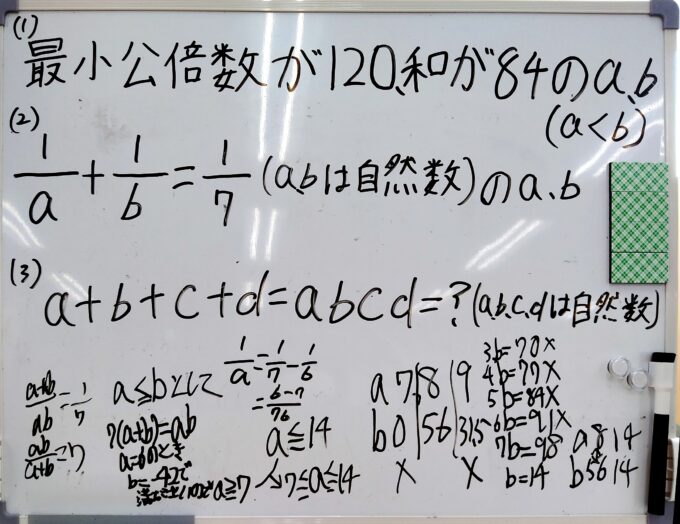 (1)
最小公倍数が120、和が84のa、b
(a<b)
(2)
1/a + 1/b = 1/7 (a,bは自然数)のa、b
(3)
a+b+c+d=abcd=?(a,b,c,dは自然数)
a+b/ab = 1/7
ab/a+b = 7
a≦bとして
7(a+b)=ab
a=6のとき
b=-42で
a≧7
↘7≦a≦14
1/a = 1/7 - 1/b
a≦14
a 7 | 8 | 9
b 0 | 56 | 31.5
× ×
3b=70×
4b=77×
5b=84×
6b=91×
7b=98
b=14
a 8 14
b 56 14